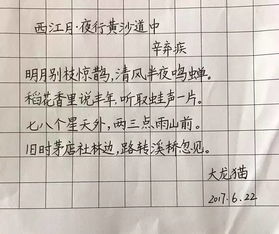 西江月·夜行黄沙道中
辛弃疾
明月别枝惊鹊,清风半夜鸣蝉。
稻花香里说丰年,听取蛙声一片。
七八个星天外,两三点雨山前。
旧时茅店社林边,路转溪桥忽见。
大龙猫
2017.6.22